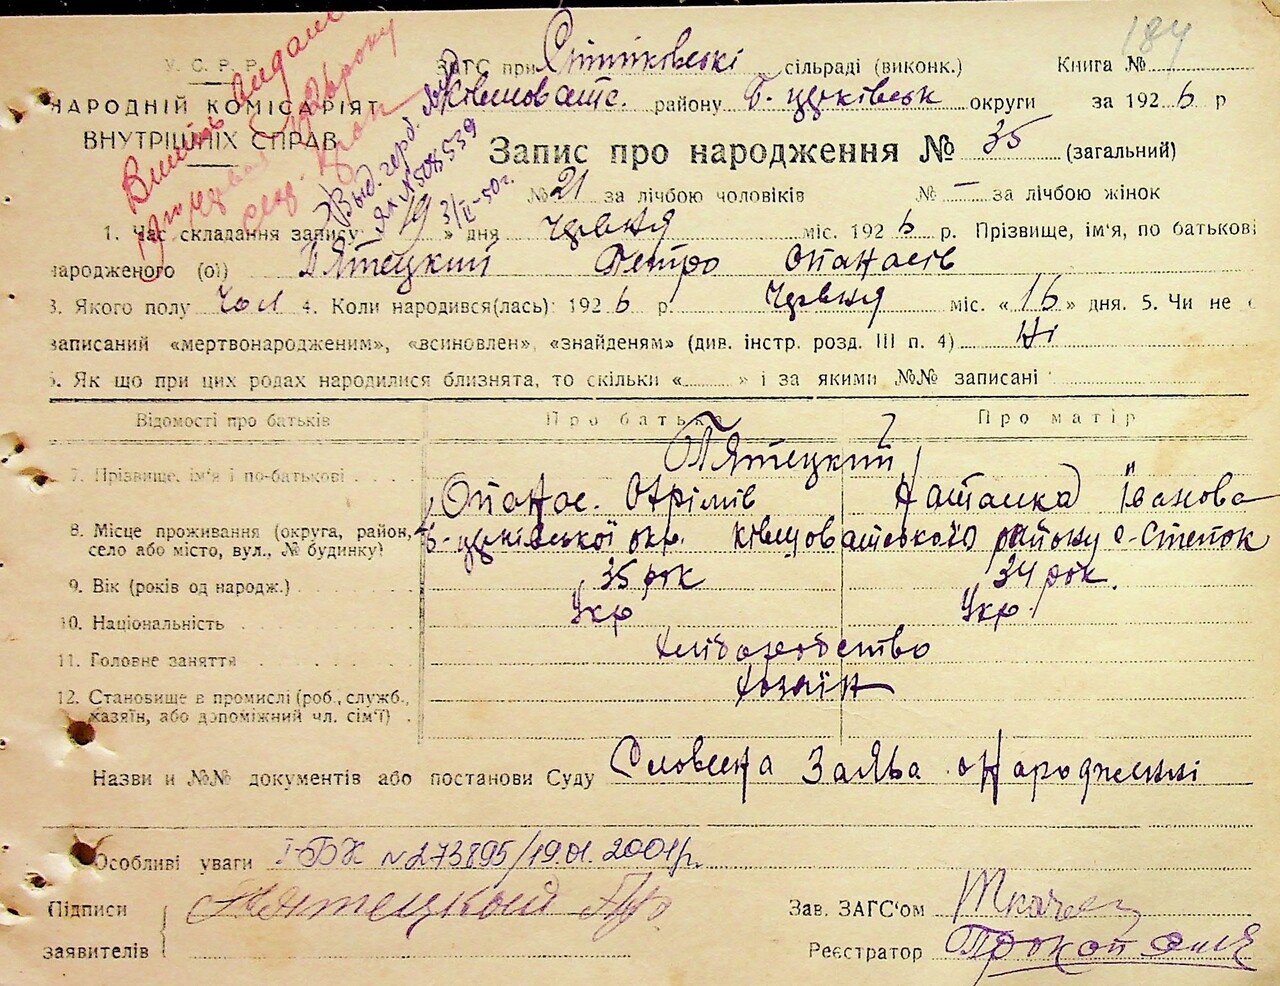 184
У. С. Р. Р. ЗАГС при сільраді (виконк.) Книга №
НАРОДНІЙ КОМІСАРІЯТ району Б. Церківськ округи за 1926 р
ВНУТРІШНІХ СПРАВ
Запис про народження № 35 (загальний)
Выд. герб.
№ 508539
3/II-50г.
№ 21 за лічбою чоловіків № — за лічбою жінок
1. Час складання запису: 19 » дня червня міс. 1926 р. Прізвище, ім'я, по батькові
народженого (ої) Пятецкий Петро Опанасів
3. Якого полу Чол 4. Коли народився(лась): 1926 р. червня міс. «16» дня. 5. Чи не
записаний «мертвонародженим», «всиновлен», «знайденям» (див. інстр. розд. III п. 4) Ні
6. Як що при цих родах народилися близнята, то скільки « » і за якими №№ записані
Відомості про батьків Про батька Про матір
Пятецкий
7. Прізвище, ім'я і по-батькові Опанас Наталка Іванова
8. Місце проживання (округа, район, село або місто, вул., № будинку) Б-церківської окр. Ківшоватського району с-Степок
9. Вік (років од народж.) 35 рок 34 рок.
10. Національність Укр Укр.
11. Головне заняття Хліборобство
12. Становище в промислі (роб., служб., хазяїн, або допоміжний чл. сім'ї) Хозяїн
Назви и №№ документів або постанови Суду Словесна Заява о Народженні
Особливі уваги І-БК №273895/19.01.2001р.
Підписи Пятецкий Зав. ЗАГС'ом
заявителів Реєстратор